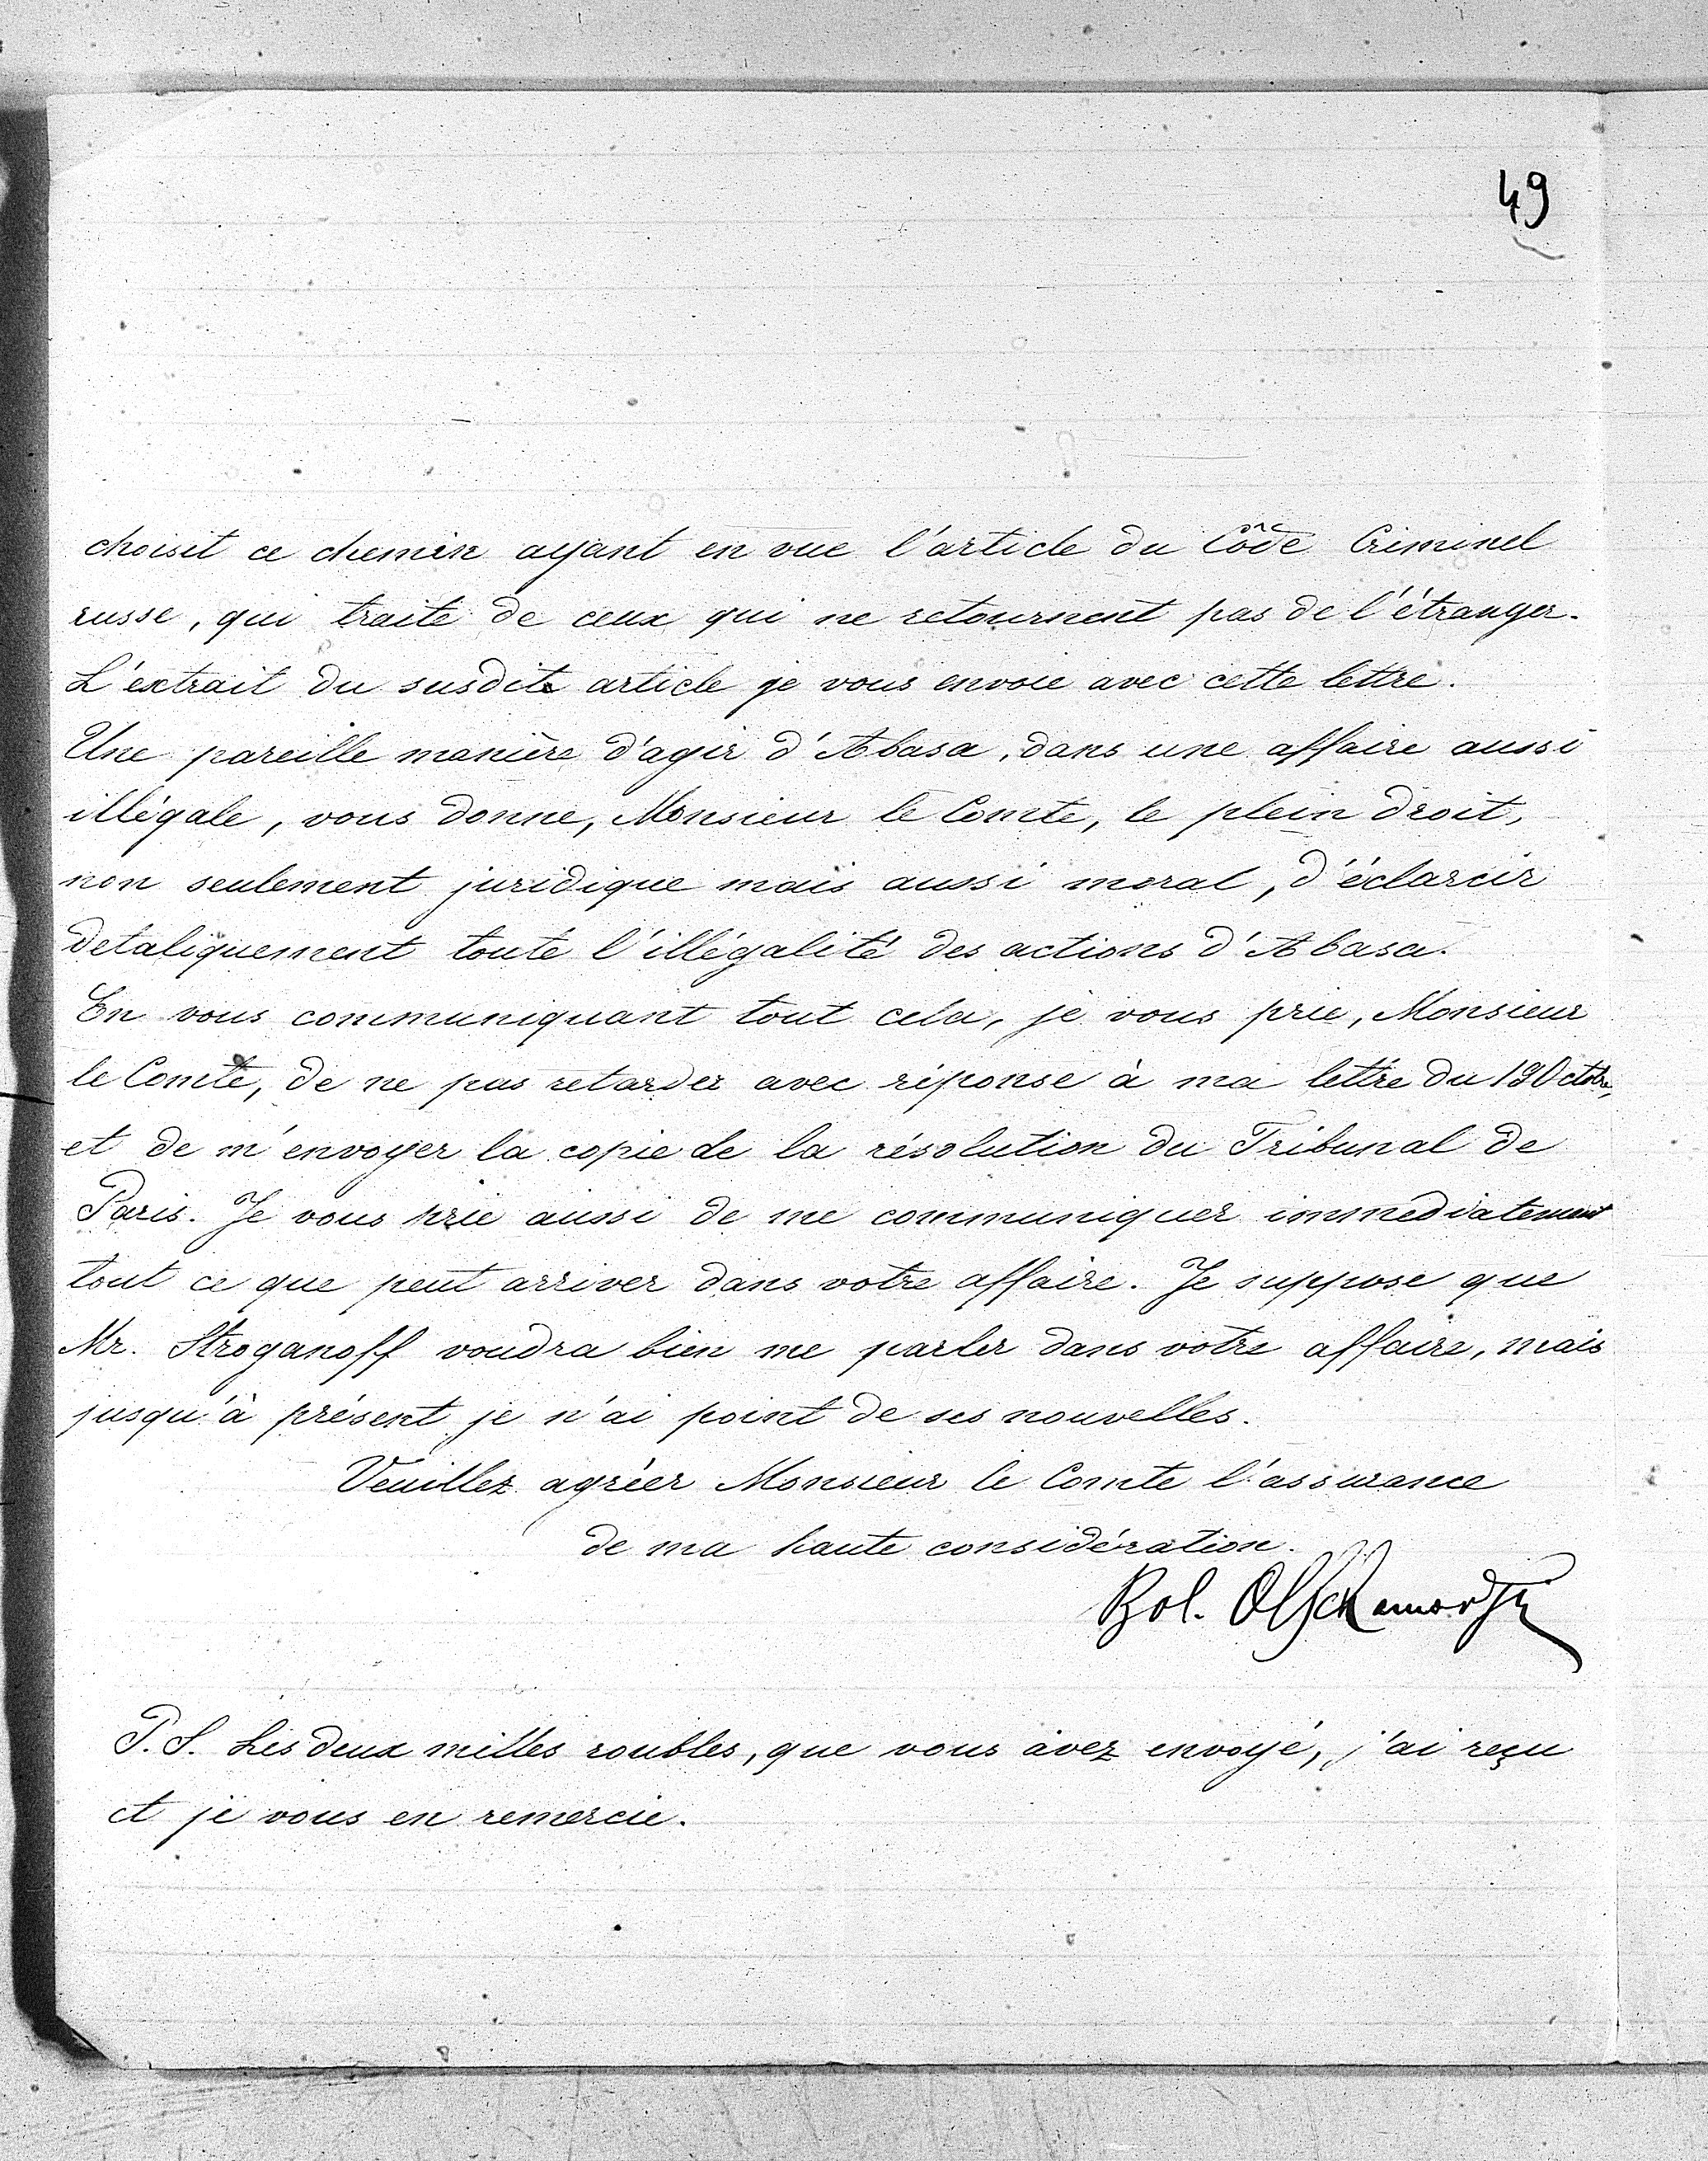 49
choisit ce chemin ayant en vue l'article du Côde Criminel
russe, qui traite de ceux qui ne retournent pas de l'étranger.
L'extrait du susdite article je vous envoie avec cette lettre.
Une pareille manière d'agir d'Abasa, dans une affaire aussi
illégale, vous donne, Monsieur le Comte, le plein droit,
non seulement juridique mais aussi moral, d'éclarcir
detaliquement toute l'illégalité des actions d'Abasa.
En vous communiquant tout cela, je vous prie, Monsieur
le Comte, de ne pas retarder avec réponse à ma lettre du 19 Octobre,
et de m'envoyer la copie de la résolution du Tribunal de
Paris. Je vous prie aussi de me communiquer immediatement
tout ce que peut arriver dans votre affaire. Je suppose que
Mr. Stroganoff voudra bien me parler dans votre affaire, mais
jusqu'à présent je n'ai point de ses nouvelles.
Veuillez agréer Monsieur le Comte l'assurance
de ma haute considération.
Bol.
P.S. Les deux milles roubles, que vous avez envoyé, j'ai reçu
et je vous en remercie.